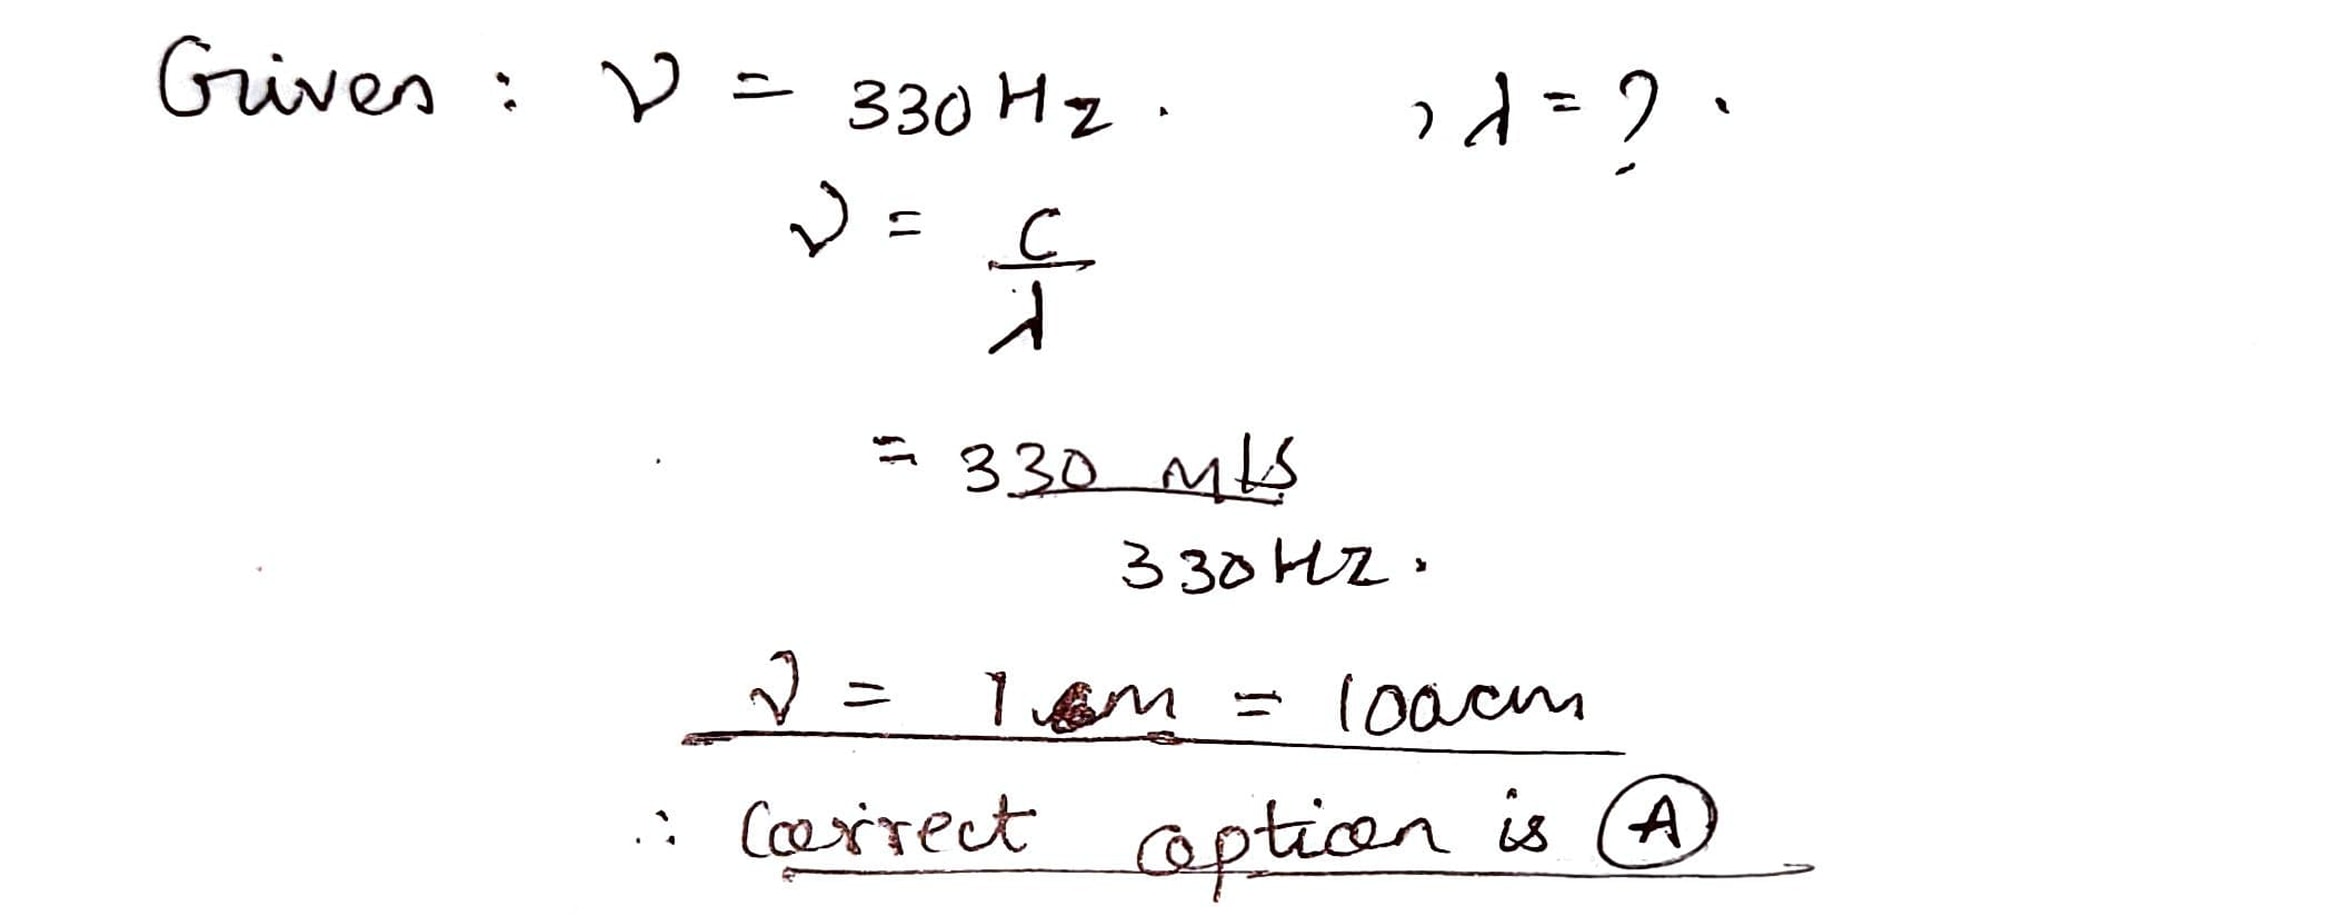 Given : ν = 330 Hz . , λ = ? .
ν = c
λ
= 330 m/s
330 Hz .
ν = 1 m = 100 cm
∴ Correct option is A